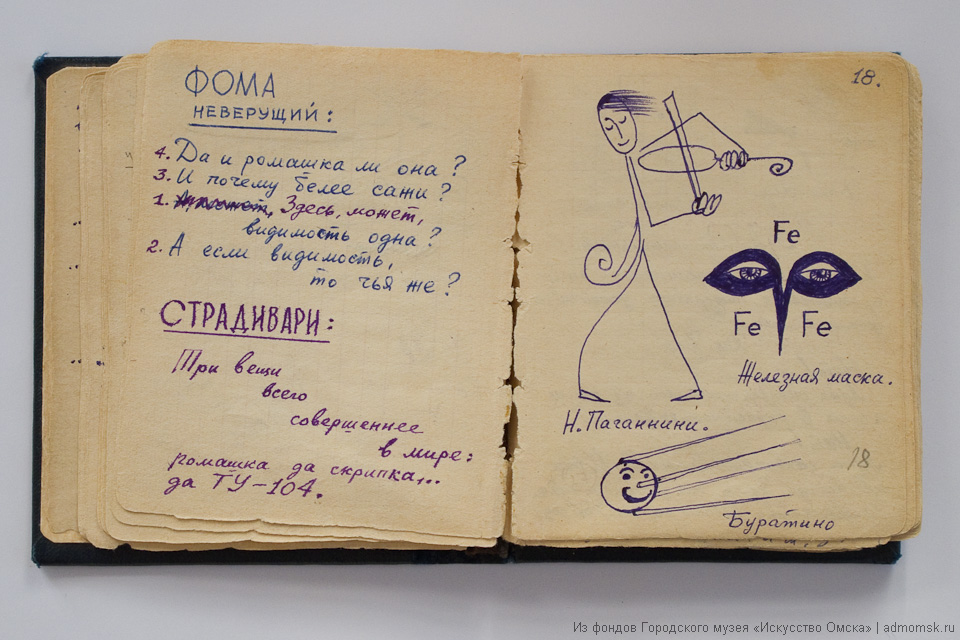 ФОМА
НЕВЕРУЩИЙ:
4. Да и ромашка ли она?
3. И почему белее сажи?
1. Здесь, может,
видимость одна?
2. А если видимость,
то чья же?
СТРАДИВАРИ:
Три вещи
всего
совершеннее
в мире:
ромашка да скрипка...
да ТУ-104.
18.
Fe
Fe Fe
Железная маска.
Н. Паганнини.
18
Буратино
Из фондов Городского музея «Искусство Омска» | admomsk.ru